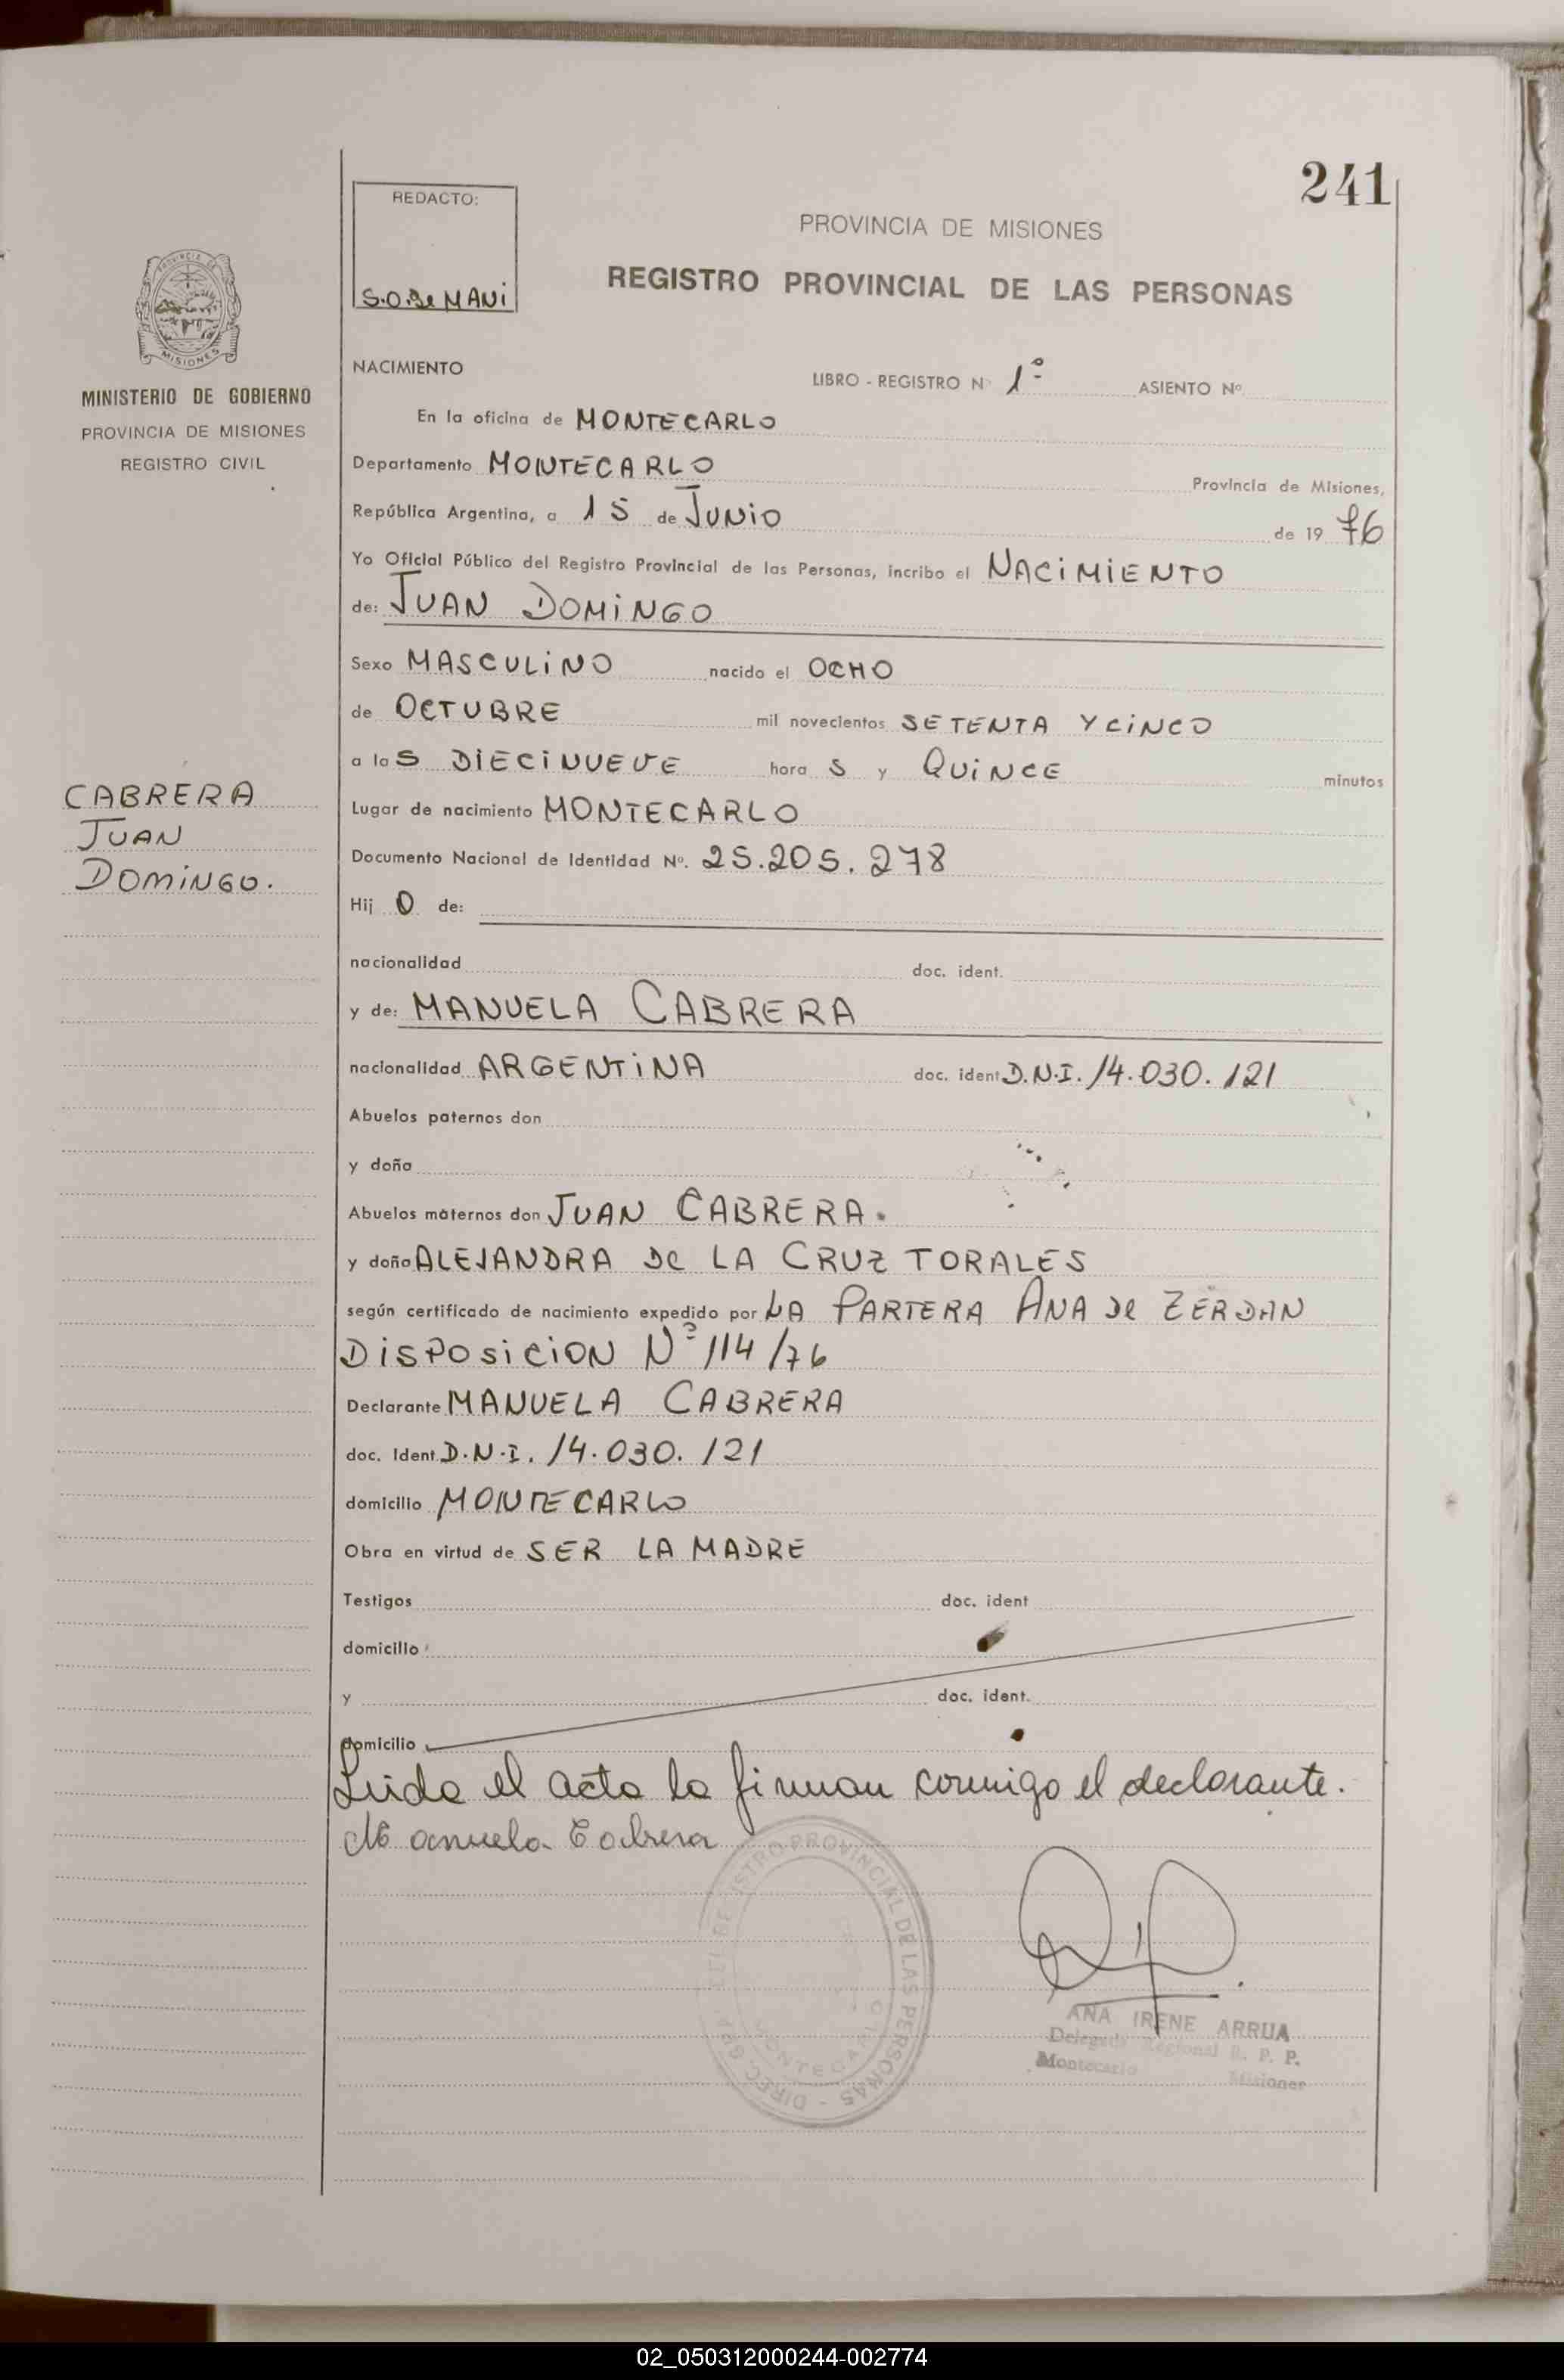 241
REDACTO:
S.O.De MANi
PROVINCIA DE MISIONES
REGISTRO PROVINCIAL DE LAS PERSONAS
PROVINCIA DE
MISIONES
MINISTERIO DE GOBIERNO
PROVINCIA DE MISIONES
REGISTRO CIVIL
NACIMIENTO
LIBRO - REGISTRO Nº 1º ASIENTO Nº
En la oficina de MONTECARLO
Departamento MONTECARLO Provincia de Misiones,
República Argentina, a 15 de JUNiO de 19 76
Yo Oficial Público del Registro Provincial de las Personas, incribo el NACiMiENTO
de: JUAN DOMiNGO
Sexo MASCULiNO nacido el OCHO
de OCTUBRE mil novecientos SETENTA Y CiNCO
a laS DiECiNUEVE hora S y QUiNCE minutos
CABRERA
JUAN
DOMiNGO.
Lugar de nacimiento MONTECARLO
Documento Nacional de Identidad Nº. 25.205.278
Hij O de:
nacionalidad doc. ident.
y de: MANUELA CABRERA
nacionalidad ARGENTiNA doc. ident D.N.I. 14.030.121
Abuelos paternos don
y doña
Abuelos maternos don JUAN CABRERA.
y doña ALEJANDRA De LA CRUZ TORALES
según certificado de nacimiento expedido por LA PARTERA ANA De ZERDAN
DiSPOSiCiON Nº 114/76
Declarante MANUELA CABRERA
doc. Ident. D.N.I. 14.030.121
domicilio MONTECARLO
Obra en virtud de SER LA MADRE
Testigos doc. ident
domicilio
y doc. ident.
domicilio
Leida el acta la firman conmigo el declarante.
Manuela Cabrera
REGISTRO PROVINCIAL DE LAS PERSONAS
MONTECARLO
ANA IRENE ARRUA
Delegada Regional R. P. P.
Montecarlo Misiones
02_050312000244-002774